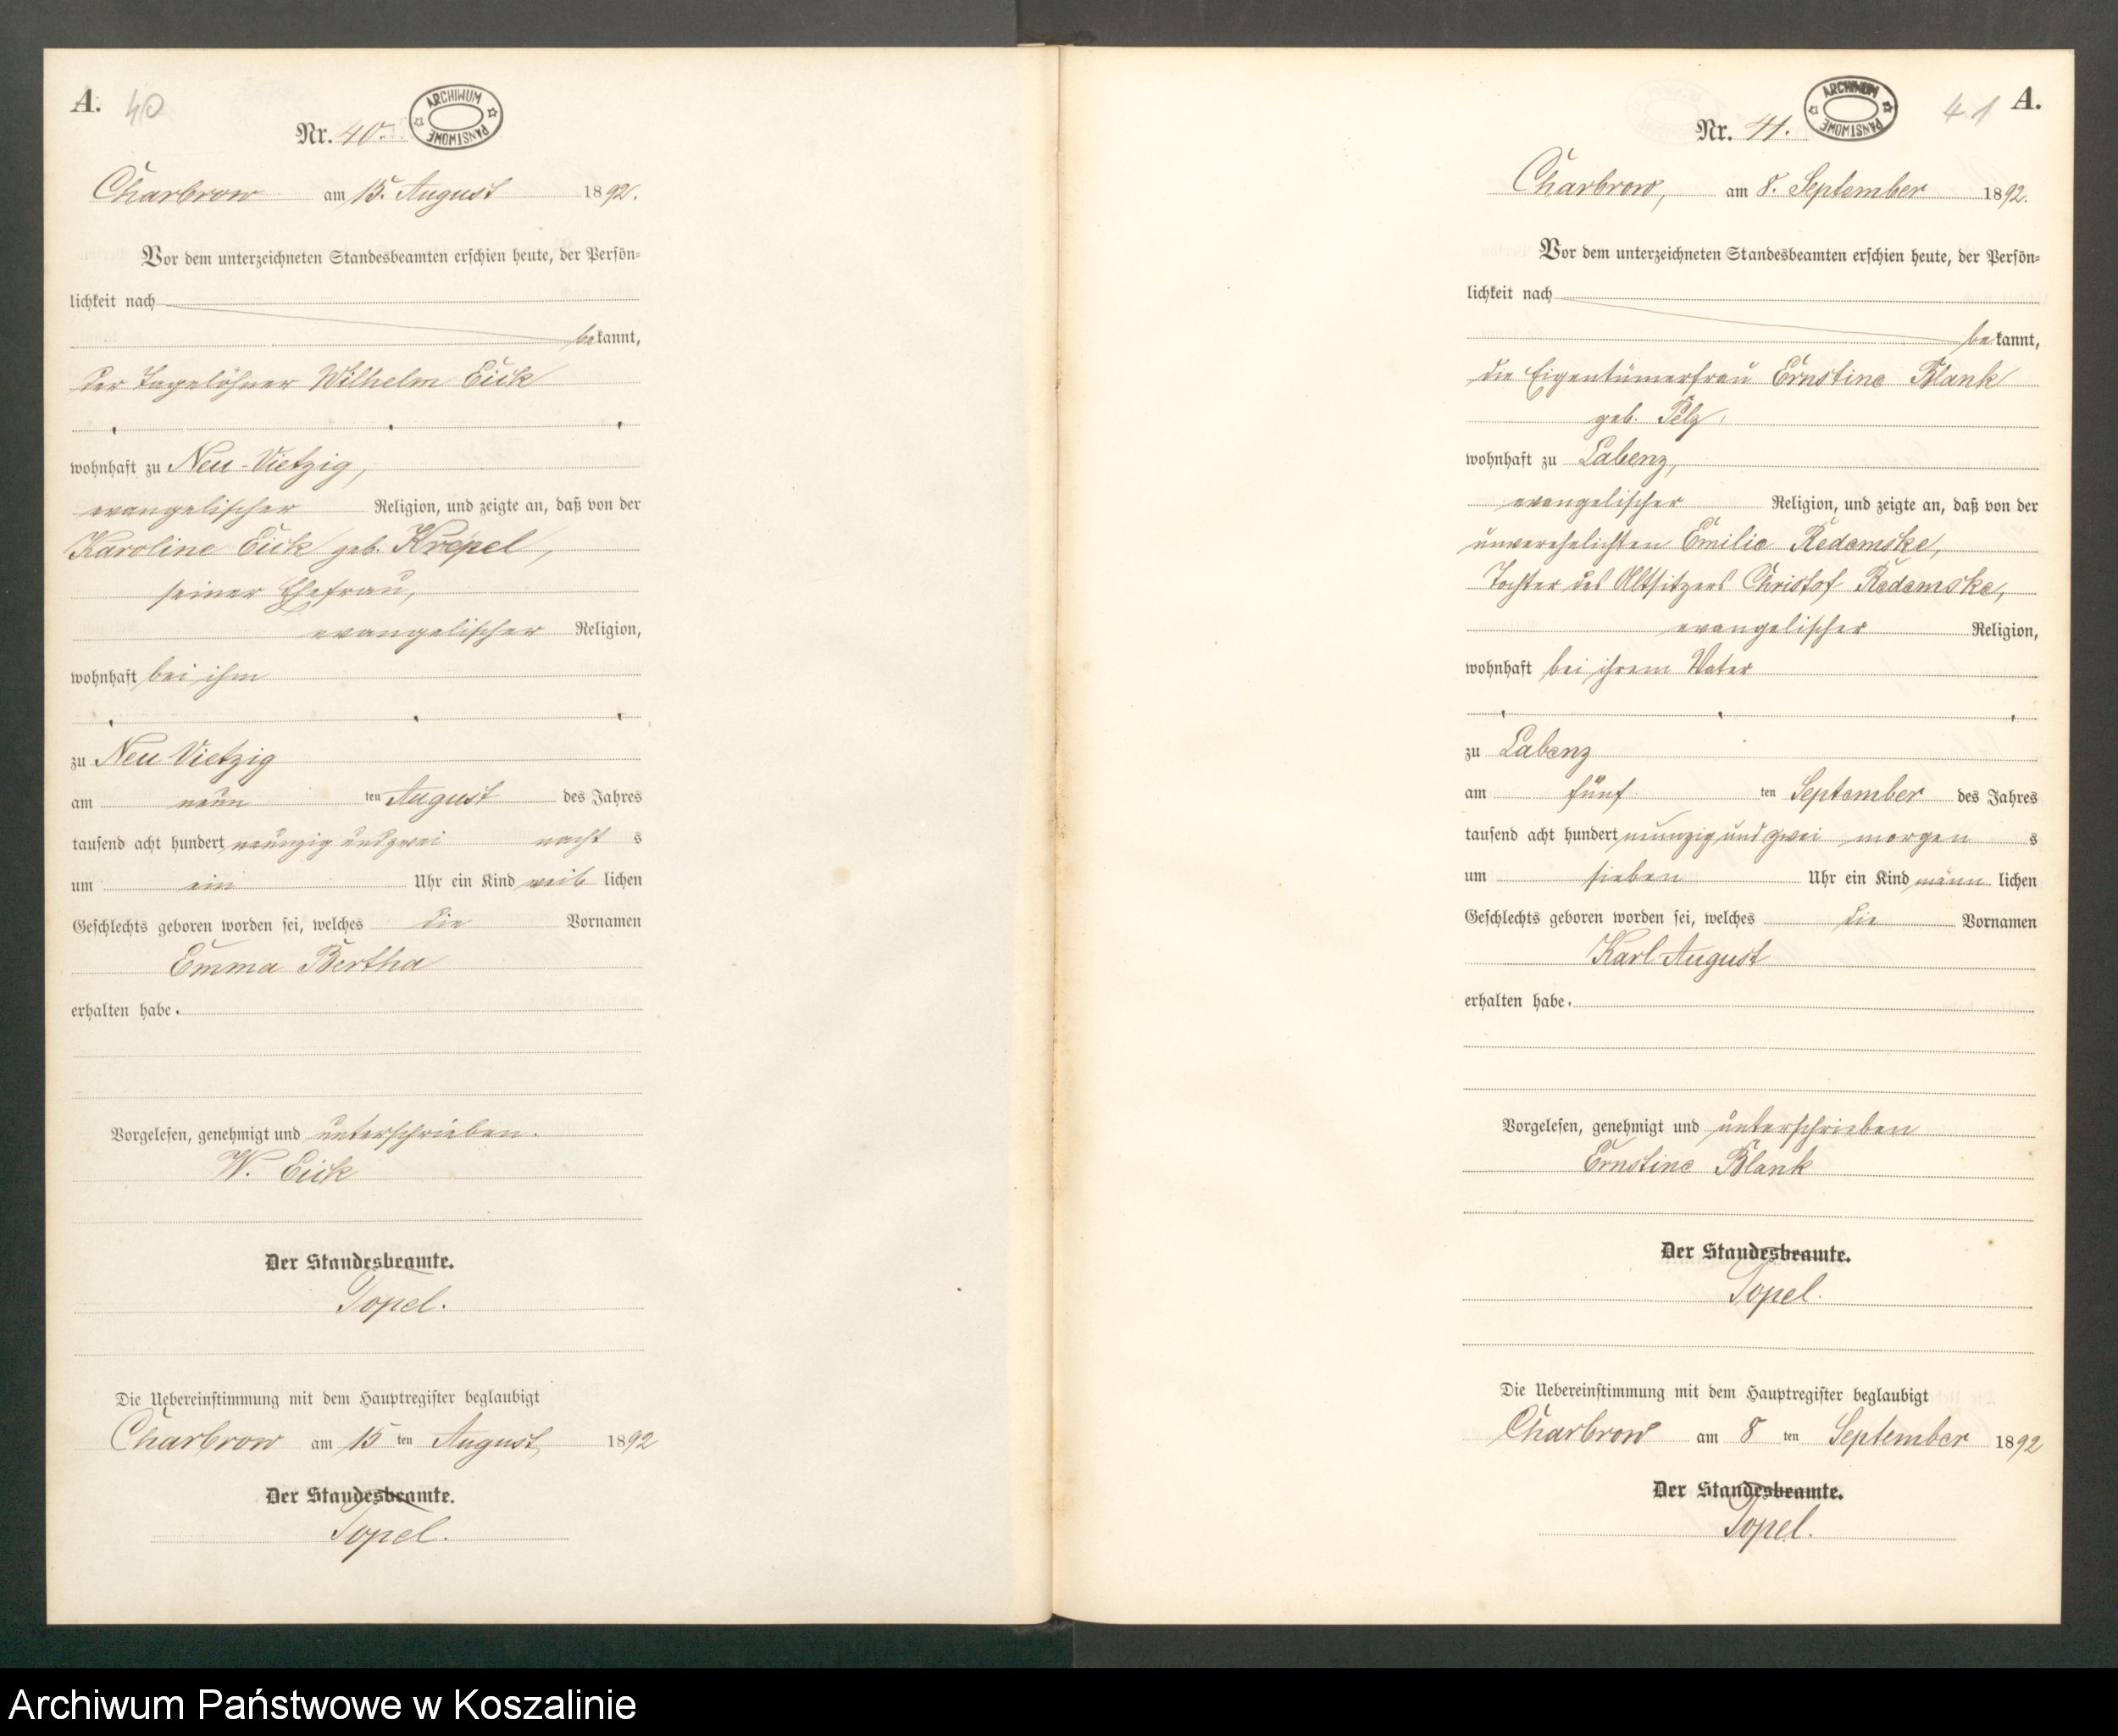 A.
40
ARCHIWUM PAŃSTWOWE
Nr. 40.
Charbrow am 15. August 1892.
Vor dem unterzeichneten Standesbeamten erschien heute, der Persön=
lichkeit nach
bekannt,
der Tagelöhner Wilhelm Eick
wohnhaft zu Neu-Vietzig,
evangelischer Religion, und zeigte an, daß von der
Karoline Eick geb. Krepel,
seiner Ehefrau,
evangelischer Religion,
wohnhaft bei ihm
zu Neu-Vietzig
am neun ten August des Jahres
tausend acht hundert neunzig und zwei nacht s
um ein Uhr ein Kind weib lichen
Geschlechts geboren worden sei, welches die Vornamen
Emma Bertha
erhalten habe.
Vorgelesen, genehmigt und unterschrieben.
W. Eick
Der Standesbeamte.
Topel.
Die Uebereinstimmung mit dem Hauptregister beglaubigt
Charbrow am 15 ten August 1892
Der Standesbeamte.
Topel.
41
A.
ARCHIWUM PAŃSTWOWE
Nr. 41.
Charbrow, am 8. September 1892.
Vor dem unterzeichneten Standesbeamten erschien heute, der Persön=
lichkeit nach
bekannt,
die Eigentümerfrau Ernstine Blank
geb. Pelz,
wohnhaft zu Labenz,
evangelischer Religion, und zeigte an, daß von der
unverehelichten Emilie Redemske,
Tochter des Altsitzers Christof Redemske,
evangelischer Religion,
wohnhaft bei ihrem Vater
zu Labenz
am fünf ten September des Jahres
tausend acht hundert neunzig und zwei morgen s
um sieben Uhr ein Kind männ lichen
Geschlechts geboren worden sei, welches die Vornamen
Karl August
erhalten habe.
Vorgelesen, genehmigt und unterschrieben
Ernstine Blank
Der Standesbeamte.
Topel.
Die Uebereinstimmung mit dem Hauptregister beglaubigt
Charbrow am 8 ten September 1892
Der Standesbeamte.
Topel.
Archiwum Państwowe w Koszalinie